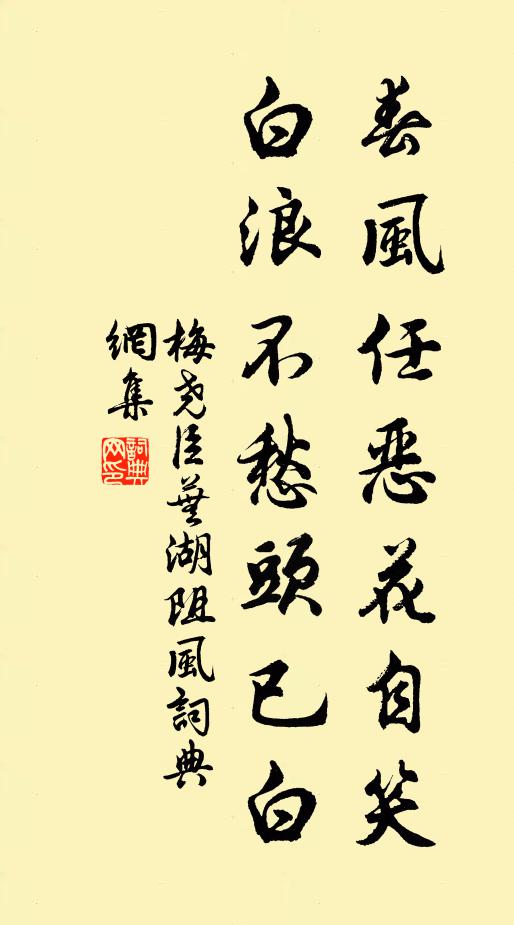 春風任惡花自笑
白浪不愁頭已白
梅尧臣蕪湖阻風詞典
網集
詞典
网印